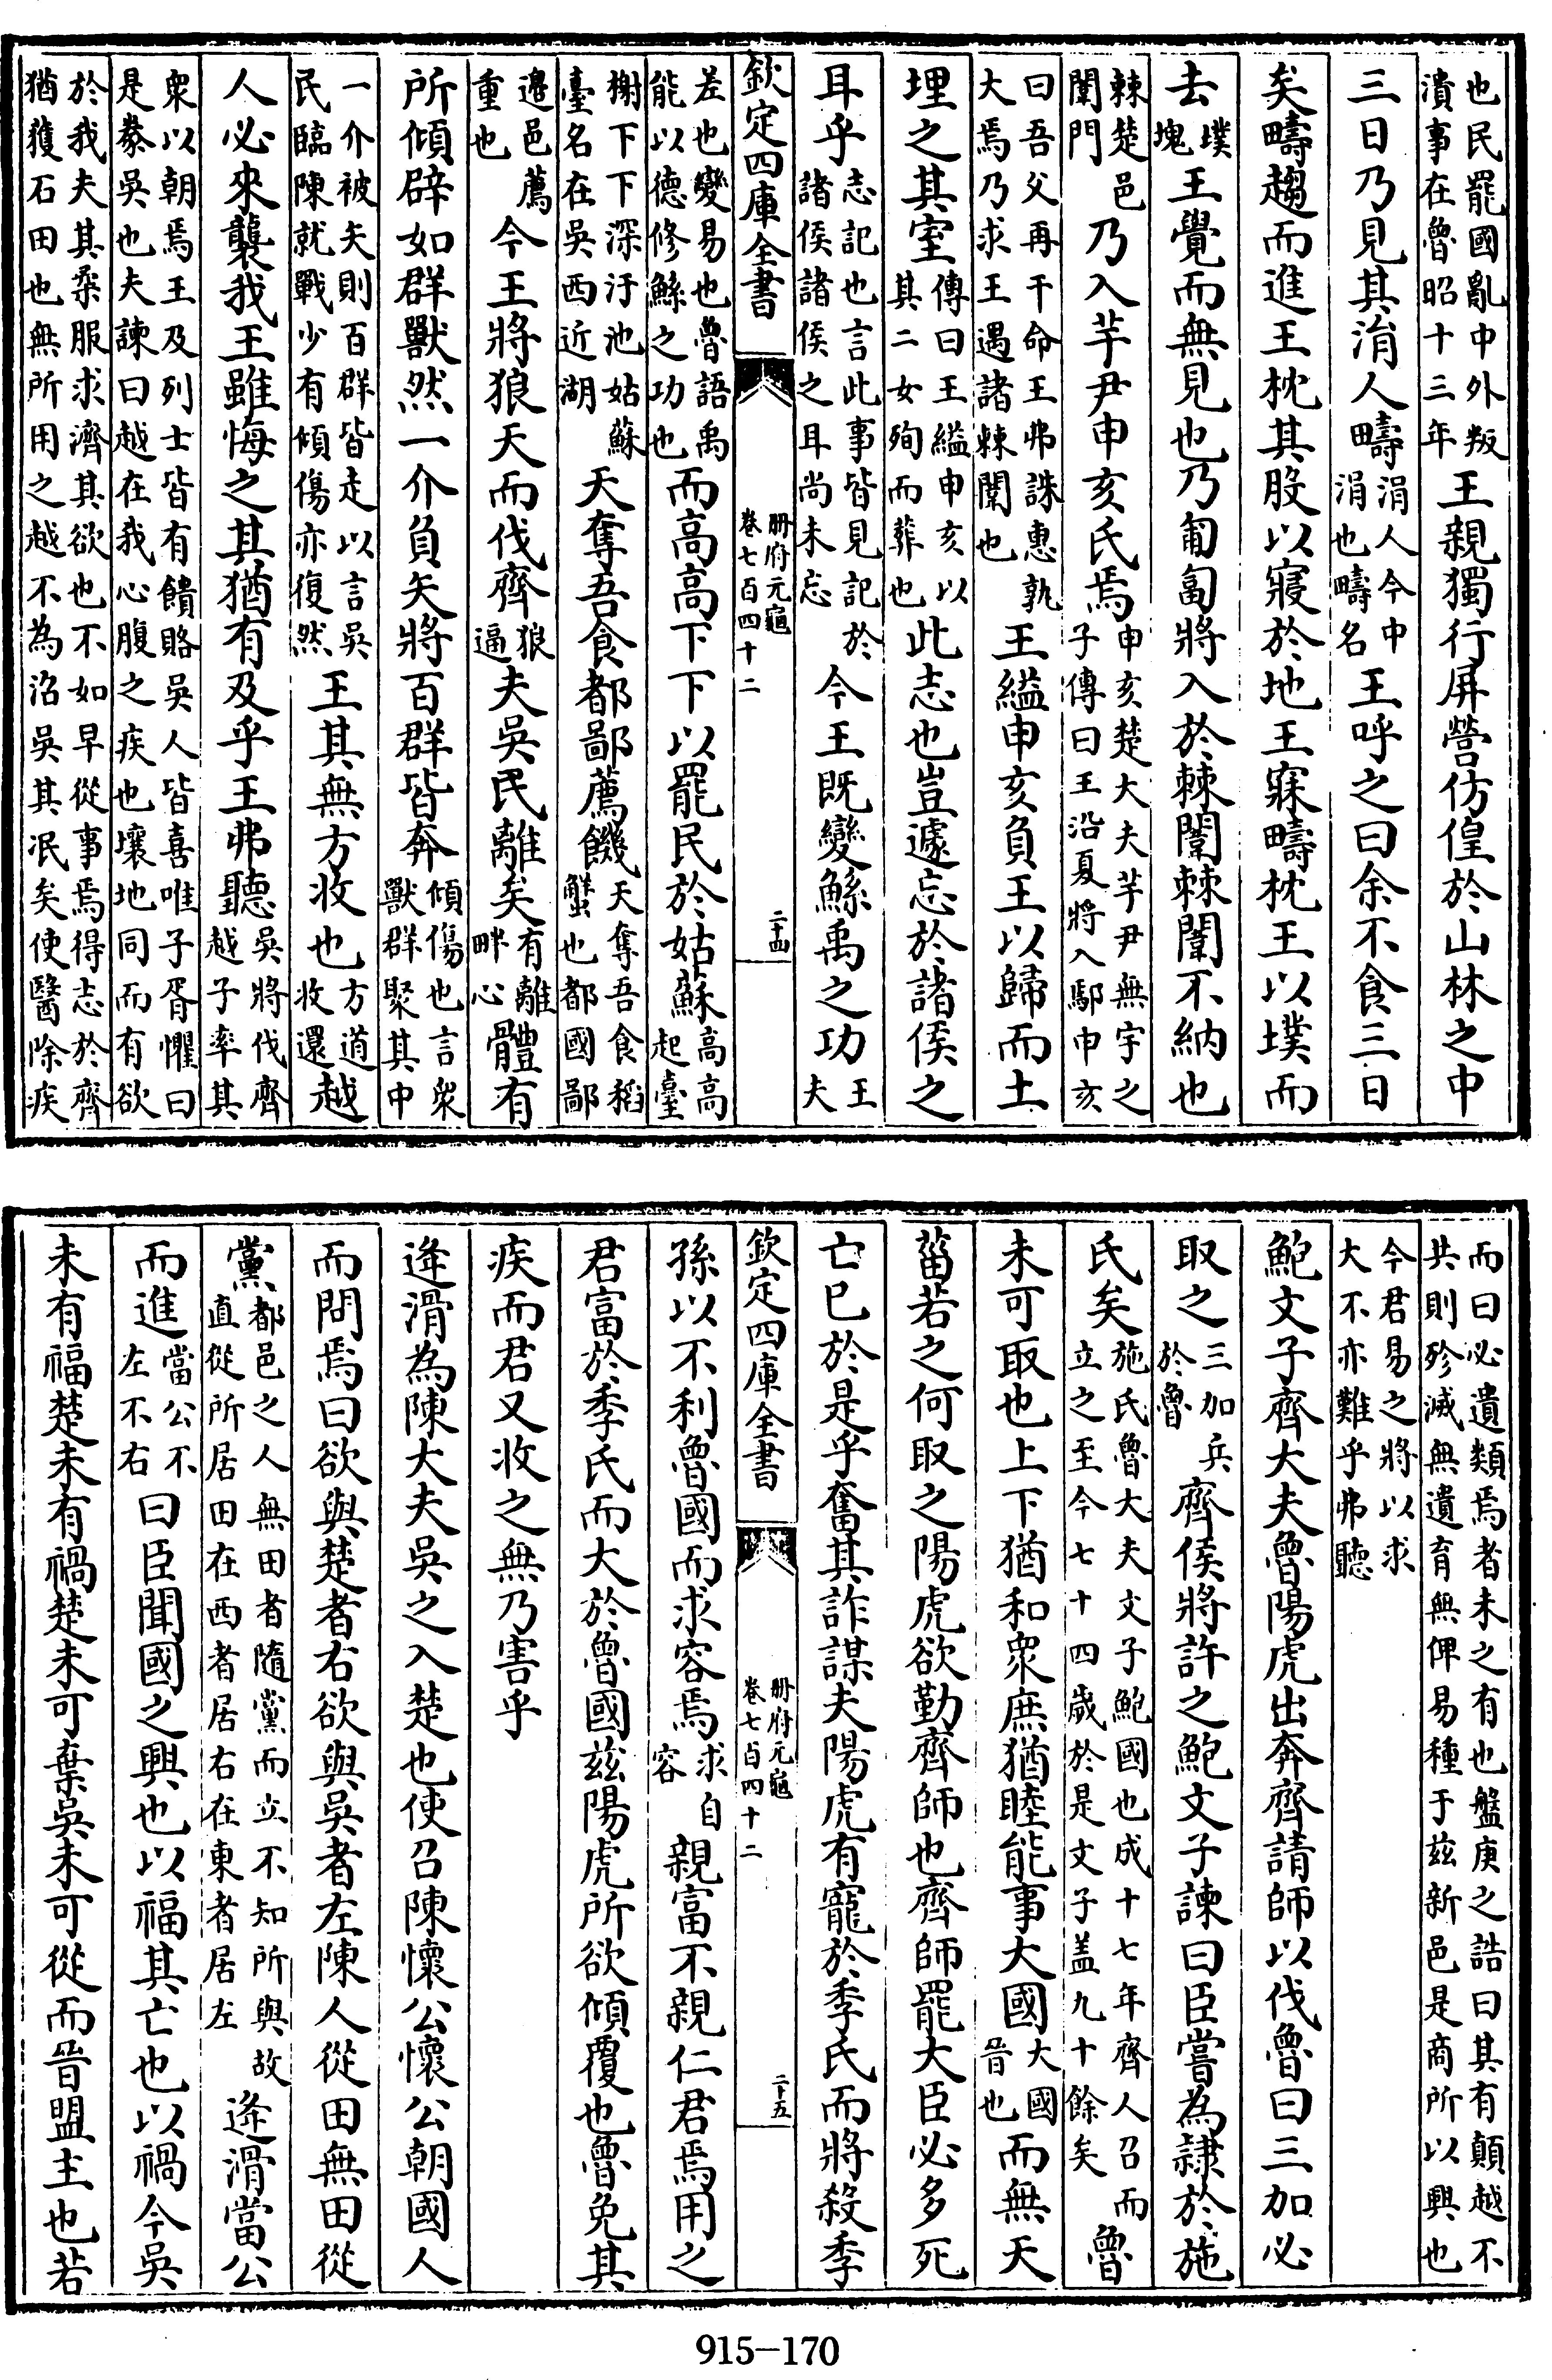 也民罷國亂中外叛
潰事在魯昭十三年王親獨行屏營仿偟於山林之中
三日乃見其涓人疇涓人今中
涓也疇名王呼之曰余不食三日
矣疇趨而進王枕其股以寢於地王寐疇枕王以墣而
去墣
塊王覺而無見也乃匍匐將入於棘闈棘闈不納也
棘楚邑
闈門乃入芋尹申亥氏焉申亥楚大夫芋尹無宇之
子傳曰王沿夏將入鄢申亥
曰吾父再干命王弗誅惠孰
大焉乃求王遇諸棘闈也王縊申亥負王以歸而土
埋之其室傳曰王縊申亥以
其二女殉而葬也此志也豈遽忘於諸侯之
耳乎志記也言此事皆見記於
諸侯諸侯之耳尚未忘今王既變鯀禹之功王
夫
欽定四庫全書
冊府元龜
卷七百四十二
二十四
差也變易也魯語禹
能以德修鯀之功也而高高下下以罷民於姑蘇高高
起臺
榭下下深汙池姑蘇
臺名在吳西近湖天奪吾食都鄙薦饑天奪吾食稻
蟹也都國鄙
邉邑薦
重也今王將狼天而伐齊狼
逼夫吳民離矣有離
畔心體有
所傾辟如群獸然一介負矢將百群皆奔傾傷也言衆
獸群聚其中
一介被矢則百群皆走以言吳
民臨陳就戰少有傾傷亦復然王其無方收也方道
收還越
人必來襲我王雖悔之其猶有及乎王弗聽吳將伐齊
越子率其
衆以朝焉王及列士皆有饋賂吳人皆喜唯子胥懼曰
是豢吳也夫諫曰越在我心腹之疾也壤地同而有欲
於我夫其柔服求濟其欲也不如早從事焉得志於齊
猶獲石田也無所用之越不為沼吳其泯矣使醫除疾
而曰必遺類焉者未之有也盤庚之誥曰其有顛越不
共則殄滅無遺育無俾易種于茲新邑是商所以興也
今君易之將以求
大不亦難乎弗聽
鮑文子齊大夫魯陽虎出奔齊請師以伐魯曰三加必
取之三加兵
於魯齊侯將許之鮑文子諫曰臣嘗為隷於施
氏矣施氏魯大夫文子鮑國也成十七年齊人召而
立之至今七十四歲於是文子盖九十餘矣魯
未可取也上下猶和衆庶猶睦能事大國大國
晉也而無天
菑若之何取之陽虎欲勤齊師也齊師罷大臣必多死
亡已於是乎奮其詐謀夫陽虎有寵於季氏而將殺季
欽定四庫全書
冊府元龜
卷七百四十二
二十五
孫以不利魯國而求容焉求自
容親富不親仁君焉用之
君富於季氏而大於魯國茲陽虎所欲傾覆也魯免其
疾而君又收之無乃害乎
逄滑為陳大夫吳之入楚也使召陳懷公懷公朝國人
而問焉曰欲與楚者右欲與吳者左陳人從田無田從
黨都邑之人無田者隨黨而立不知所與故
直從所居田在西者居右在東者居左逄滑當公
而進當公不
左不右曰臣聞國之興也以福其亡也以禍今吳
未有福楚未有禍楚未可棄吳未可從而晉盟主也若
915-170